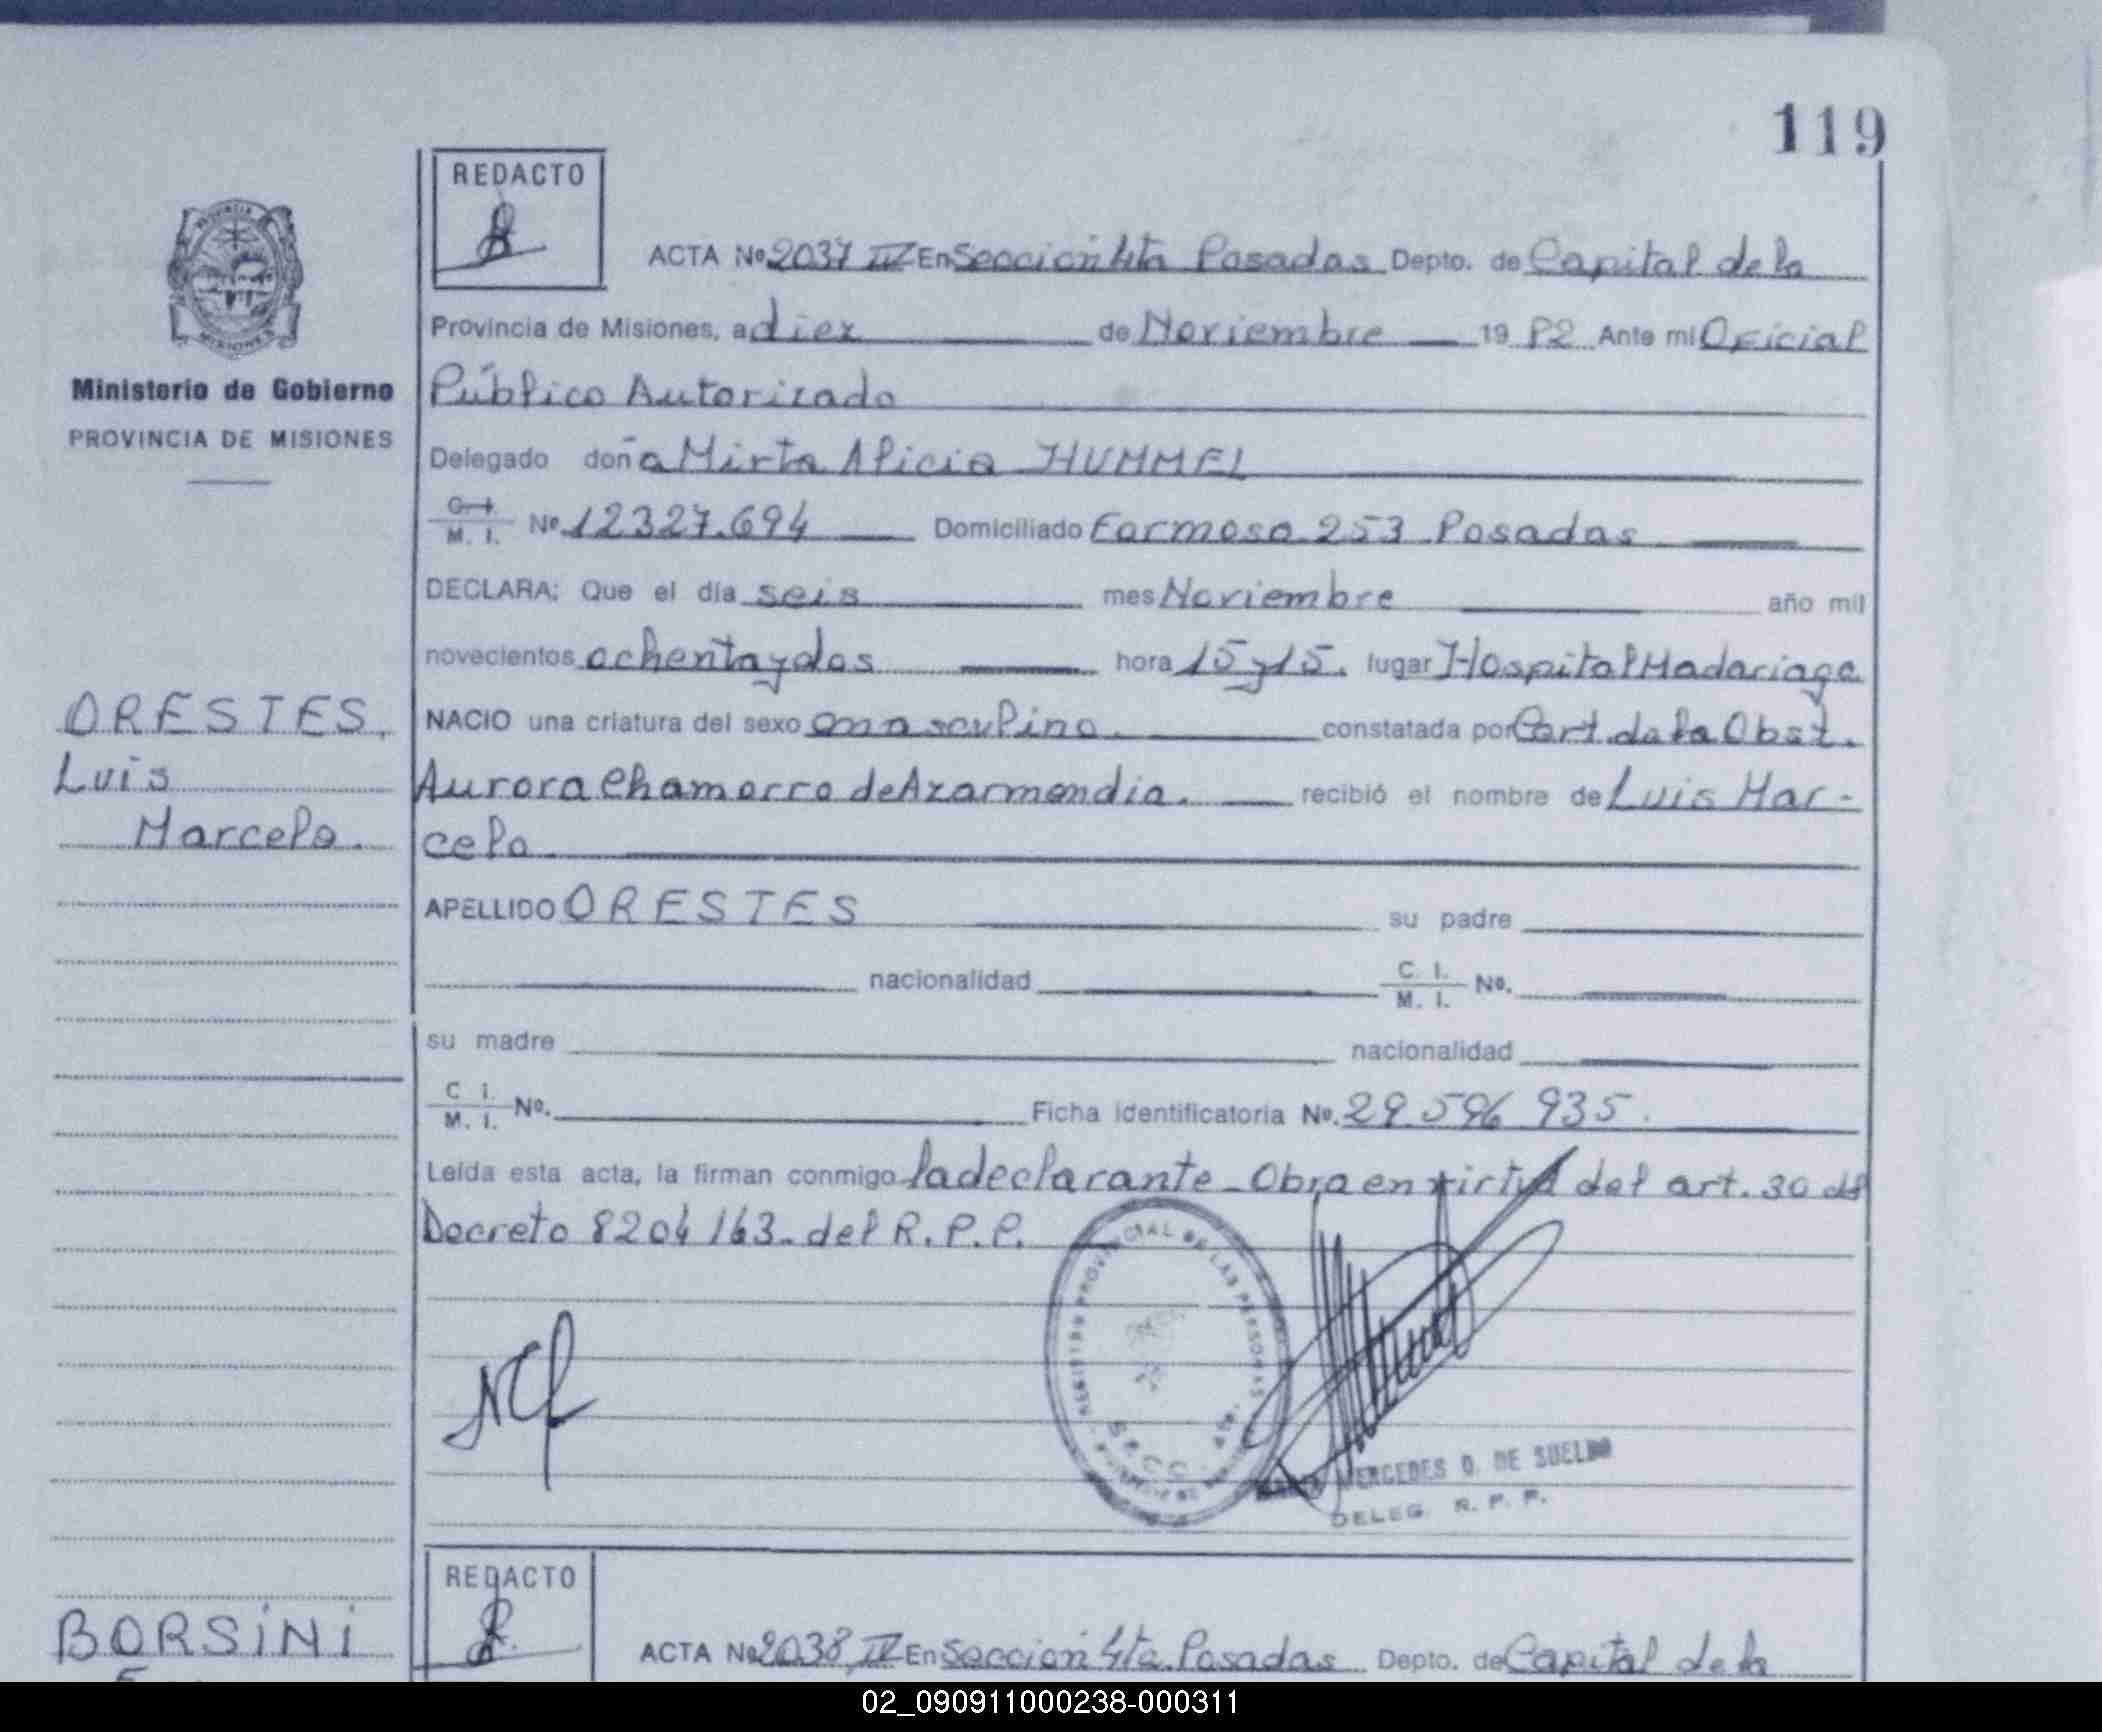 119
REDACTO
ACTA Nº 2037 IV En Sección 4ta Posadas Depto. de Capital de la
Provincia de Misiones, a diez de Noviembre 1982 Ante mí Oficial
Público Autorizado
Ministerio de Gobierno
PROVINCIA DE MISIONES
Delegado doña Mirta Alicia HUMMEL
C. I. M. I. Nº 12327.694 Domiciliado Formosa 253 Posadas
DECLARA: Que el día seis mes Noviembre año mil
novecientos ochenta y dos hora 15 y 15. lugar Hospital Madariaga
ORESTES,
Luis
Marcelo.
NACIO una criatura del sexo masculino. constatada por Cert. de la Obst.
Aurora Chamorro de Azarmendia. recibió el nombre de Luis Mar-
celo
APELLIDO ORESTES su padre
nacionalidad C. I. M. I. Nº.
su madre nacionalidad
C. I. M. I. Nº. Ficha identificatoria Nº. 29.596 935.
Leída esta acta, la firman conmigo la declarante. Obra en virtud del art. 30 del
Decreto 8204/63. del R.P.P.
REGISTRO PROVINCIAL DE LAS PERSONAS
MERCEDES O. DE SUELDO
DELEG. R. P. P.
REDACTO
BORSINI
ACTA Nº 2038 IV En Sección 4ta. Posadas Depto. de Capital de la
02_090911000238-000311